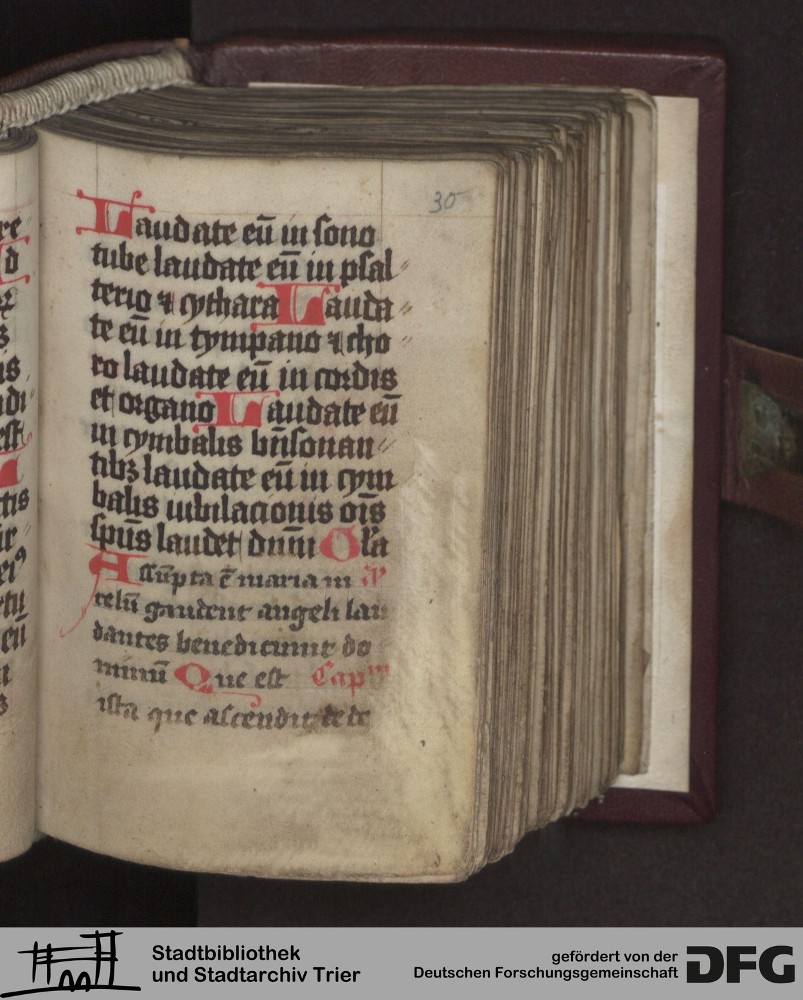 30
Laudate eū in sono
tube laudate eū in psal
terio ⁊ cythara Lauda
te eū in tympano ⁊ cho
ro laudate eū in cordis
et organo Laudate eū
in cymbalis bn̄sonan
tibꝫ laudate eū in cym
balis iubilacionis oīs
spūs laudet dnm̄ Gl'a
Assūpta ē maria in
celū gaudent angeli lau
dantes benedicunt do
minū Que est Cap
ista que ascendit de de
Stadtbibliothek
und Stadtarchiv Trier
gefördert von der
Deutschen Forschungsgemeinschaft
DFG